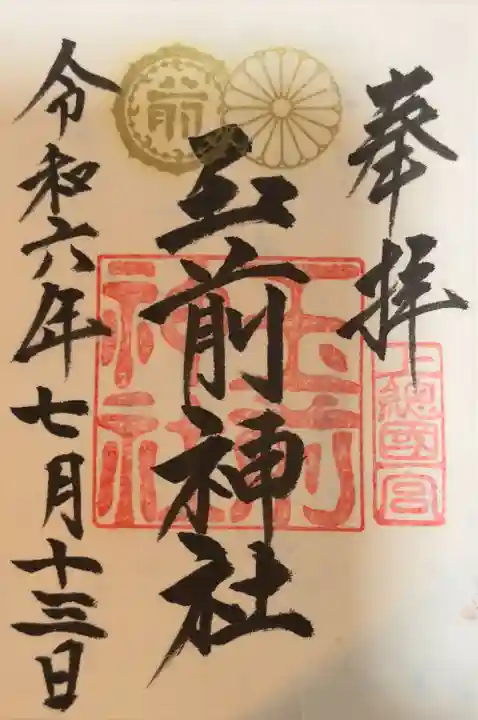 奉拝
上総國一宮
玉前神社
玉前
神社
前
令和六年七月十三日